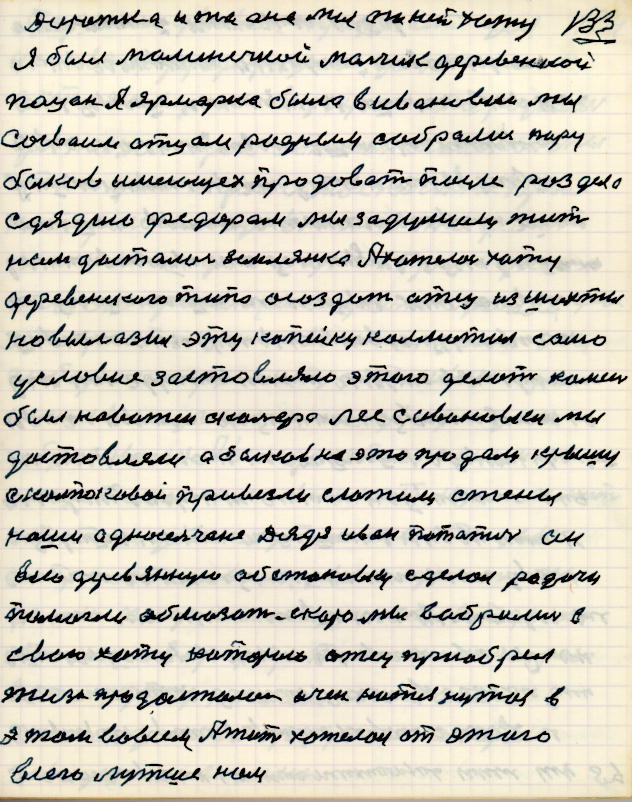 дорожка и та она мы с ней хату 133
Я был малинечкой малчик деревенской
пацан А ярмарка была в ивановки мы
со своим отцам родным собрались пару
быков имеющех продоват после роздела
с дядяю федорам мы задумали жит
нам досталос землянка А хателос хату
деревенского типо создат отец из шахты
но вылазил эту копейку калмотил само
условие заставляло этого делат камен
был навотен с камера лес с ивановки мы
доставляли а быков на это продали крышу
с колпаковой привезли сложили стены
наши адноселчане дядя иван потапыч он
всю деревянную обстановку сделал родичи
помогли обмозат скоро мы вобралис в
свою хату которую отец приобрел
жизн продолжалас очен натянутоя в
этом вовсем А жит хателос от этого
всего лутше нам